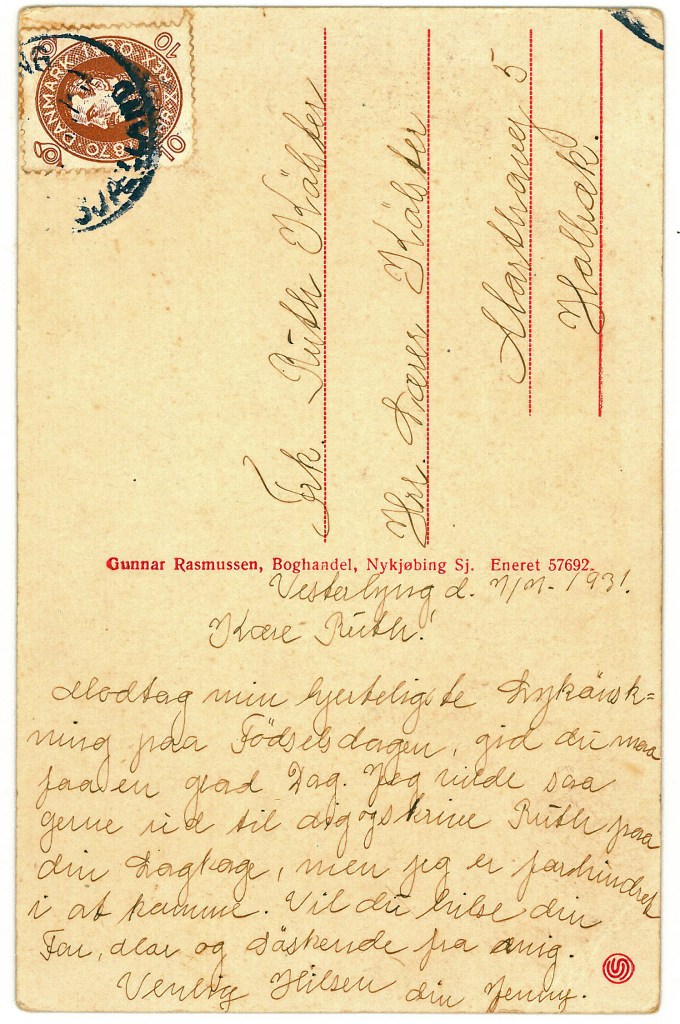 DANMARK
10 10
1870
SJÆLLAND
Frk. Ruth Kälster
Hrr. Lærer Kälster
Marthavej 5
Holbæk.
Gunnar Rasmussen, Boghandel, Nykjøbing Sj. Eneret 57692.
Vesterlyng d. 1931.
Kære Ruth!
Modtag min hjerteligste Lykönsk=
ning paa Födselsdagen, gid du maa
faa en glad Dag. Jeg vilde saa
gerne ud til dig og skrive Ruth paa
din Lagkage, men jeg er forhindret
i at komme. Vil du hilse din
Far, Mor og Söskende fra mig.
Venlig Hilsen din Jenny.